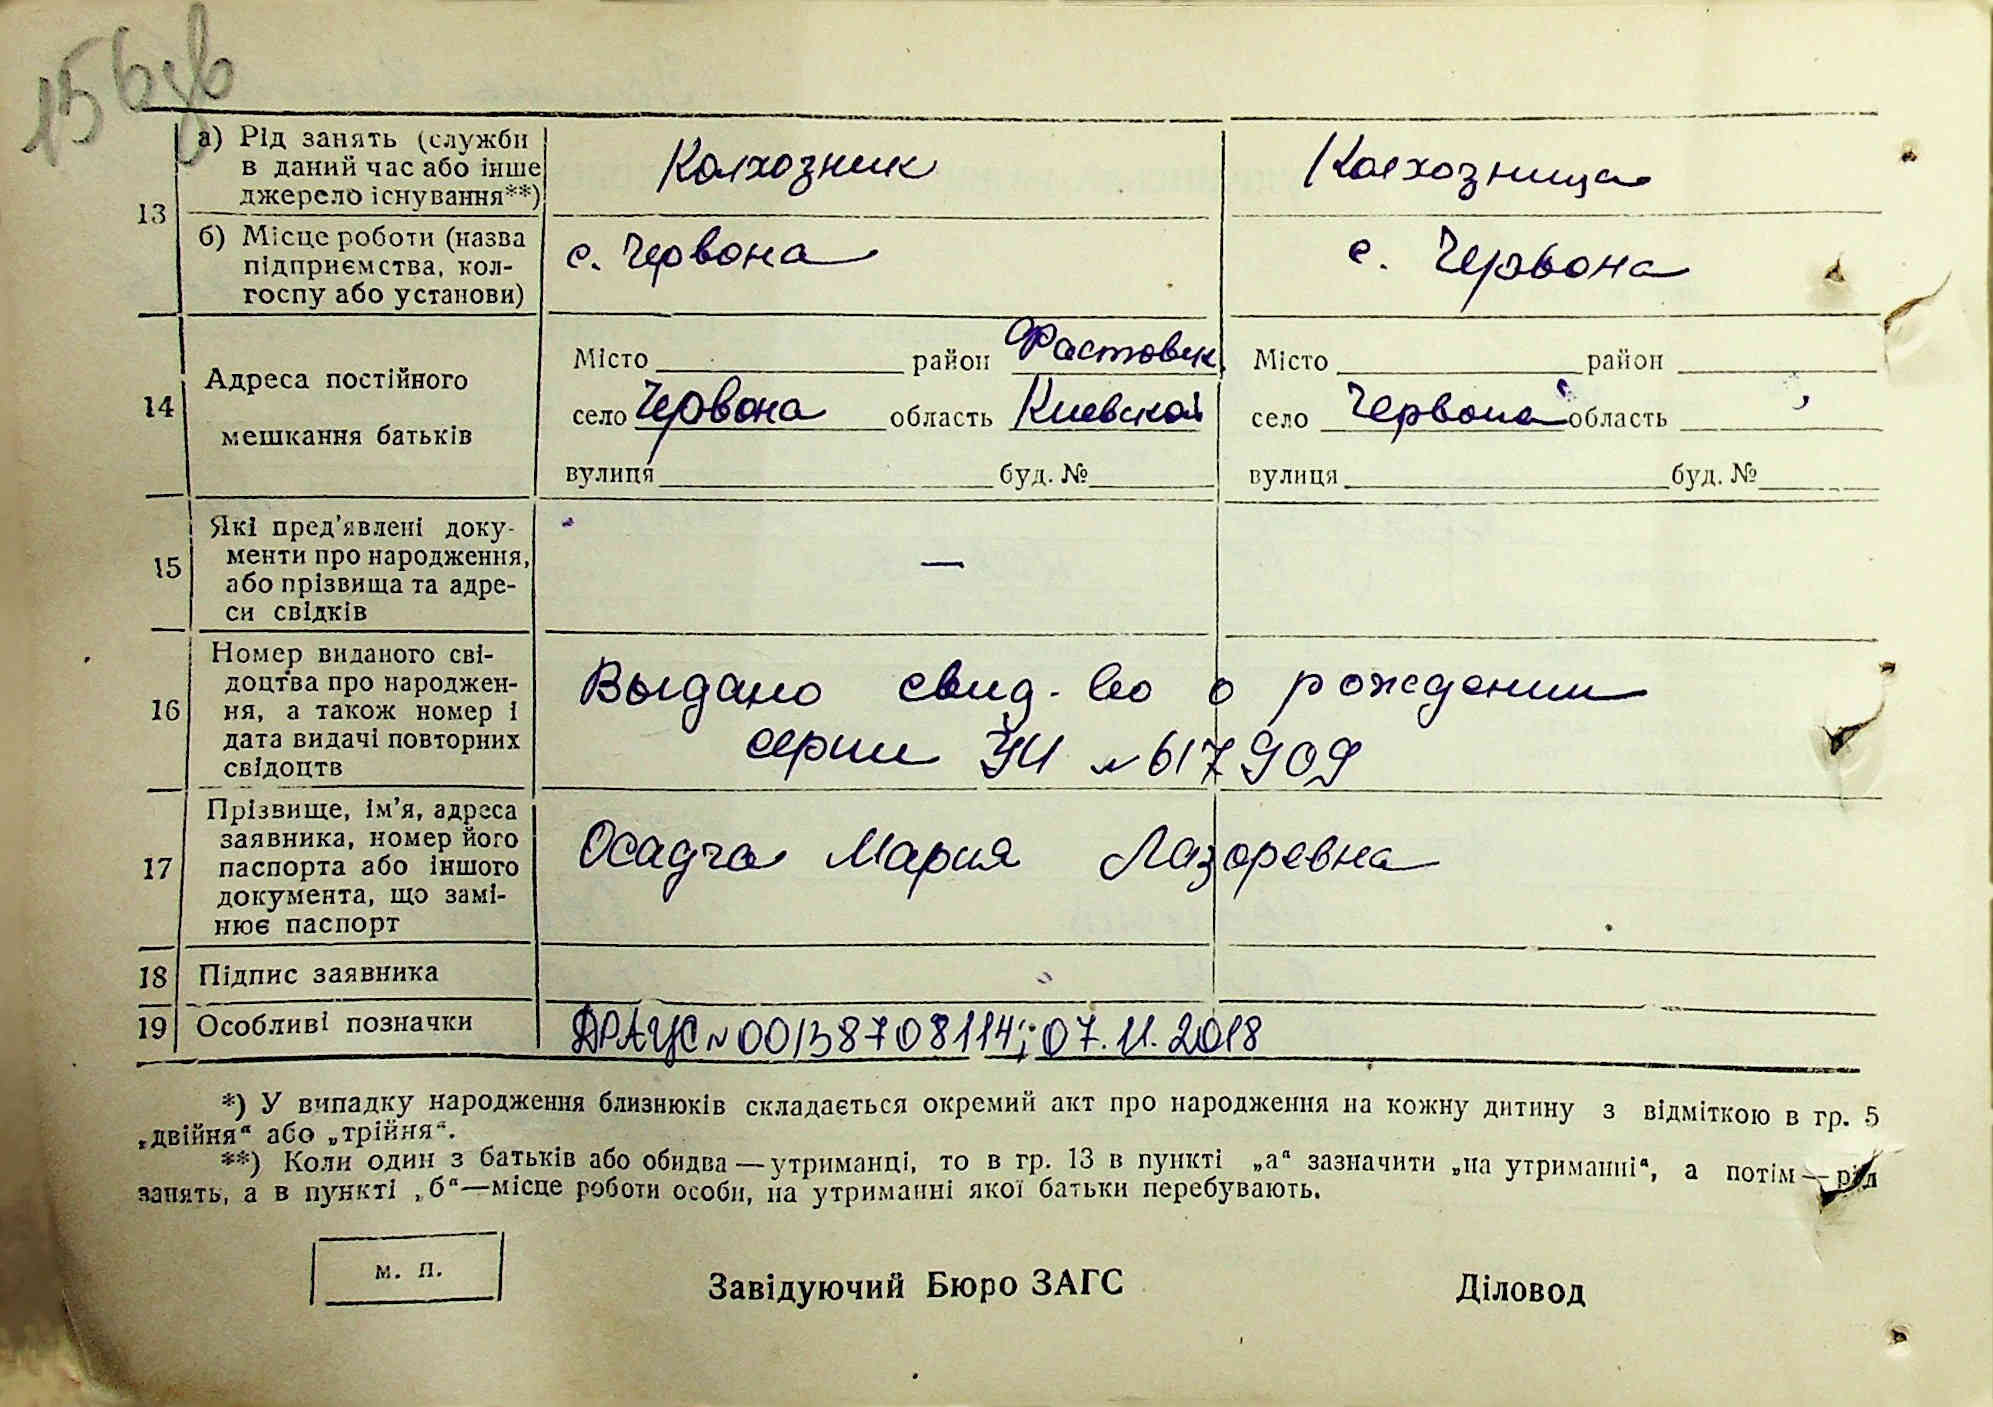 15
13
а) Рід занять (служби
в даний час або інше
джерело існування**)
Колхозник
Колхозница
б) Місце роботи (назва
підприємства, кол-
госпу або установи)
с. Червона
с. Червона
14
Адреса постійного
мешкання батьків
Місто район Фастовск
село Червона область Киевской
вулиця буд. №
Місто район
село Червона область
вулиця буд. №
15
Які пред’явлені доку-
менти про народження,
або прізвища та адре-
си свідків
—
16
Номер виданого сві-
доцтва про народжен-
ня, а також номер і
дата видачі повторних
свідоцтв
Выдано свид-во о рождении
серии УИ №617909
17
Прізвище, ім’я, адреса
заявника, номер його
паспорта або іншого
документа, що замі-
нює паспорт
Осадча Мария Лазоревна
18
Підпис заявника
19
Особливі позначки
ДРАЦС №00138708114; 07.11.2018
*) У випадку народження близнюків складається окремий акт про народження на кожну дитину з відміткою в гр. 5
„двійня“ або „трійня“.
**) Коли один з батьків або обидва—утриманці, то в гр. 13 в пункті „а“ зазначити „на утриманні“, а потім—рід
занять, а в пункті „б“—місце роботи особи, на утриманні якої батьки перебувають.
м. п.
Завідуючий Бюро ЗАГС
Діловод